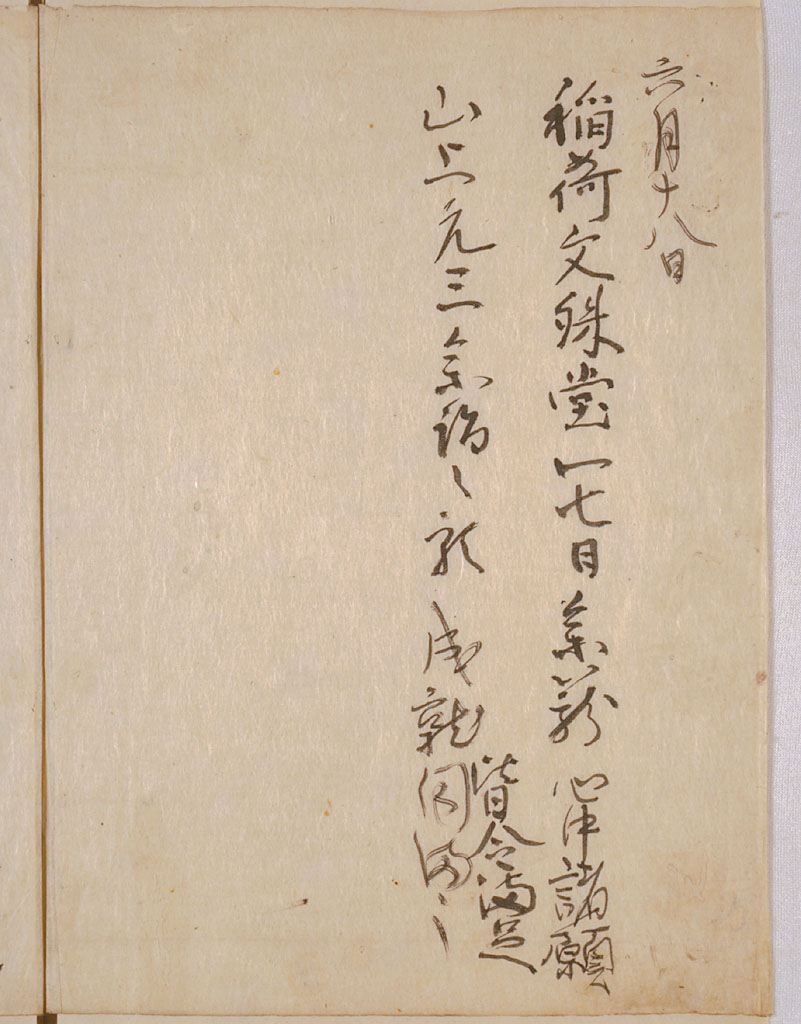 六月十八日
稲荷文殊堂一七日参籠 心中諸願
皆令満足
山上元三参詣之 成就円満